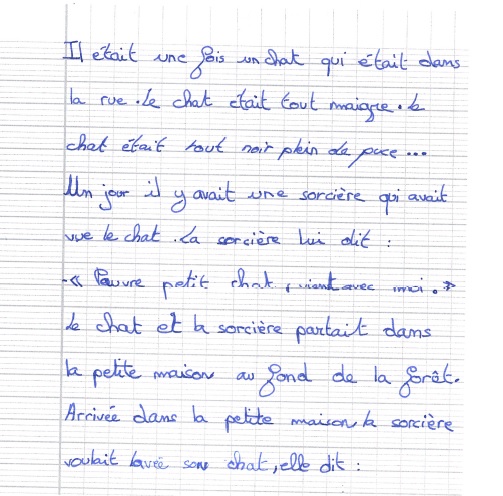 Il était une fois un chat qui était dans
la rue. Le chat était tout maigre. Le
chat était tout noir plein de puce...
Un jour il y avait une sorcière qui avait
vue le chat. La sorcière lui dit :
- « Pauvre petit chat, vient avec moi. »
Le chat et la sorcière partait dans
la petite maison au fond de la forêt.
Arrivée dans la petite maison la sorcière
voulait lavée son chat, elle dit :